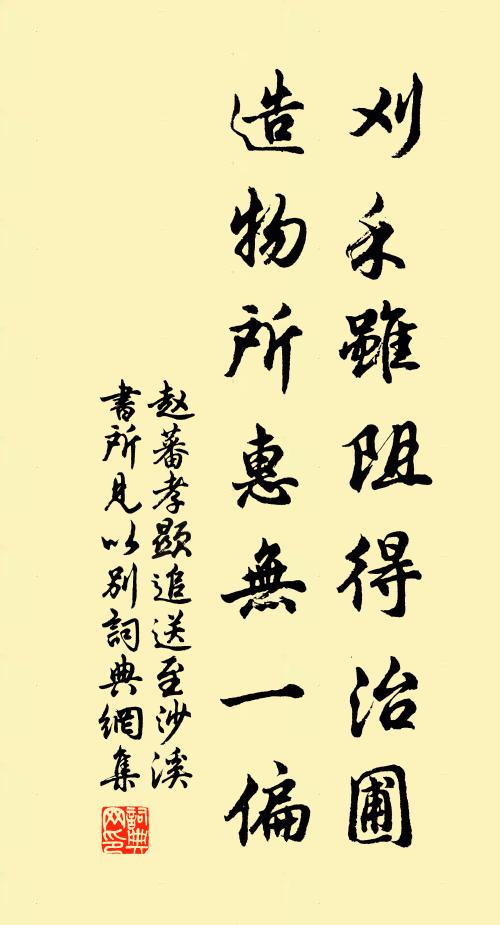 刈禾雖阻得治圃
造物所惠無一偏
赵蕃孝顯追送至沙溪
書所見以别詞典網集
詞典网印